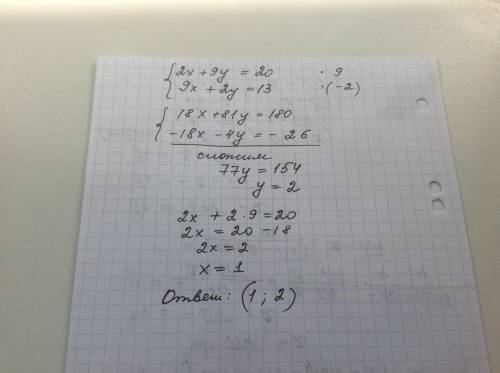 {2x + 9y = 20 · 9
{9x + 2y = 13 ·(-2)
{18x + 81y = 180
{-18x - 4y = - 26
сложим
77y = 154
y = 2
2x + 2·9 = 20
2x = 20 - 18
2x = 2
x = 1
Ответ: (1 ; 2)